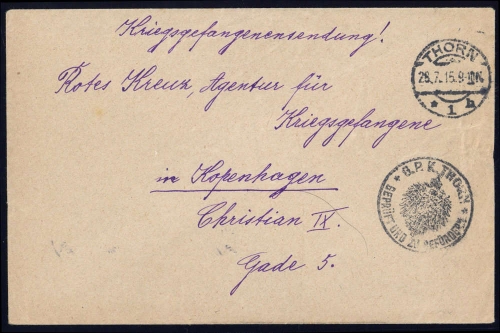 Kriegsgefangenensendung!
Rotes Kreuz, Agentur für
Kriegsgefangene
in Kopenhagen
Christian IX.
Gade 5.
THORN
28.7.15.9-10V.
* 1 h
* G.P.K. THORN *
GEPRÜFT UND ZU BEFÖRDERN